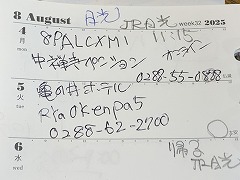 8 August 日光 JR日光 week32 2025
4 月 mon 8PALCXM1 11:15
オーライン
中禅寺ペンション
0288-55-0888
5 火 tue 亀の井ホテル
RraOkenpa5
0288-62-2700
6 水 wed 帰る
JR日光